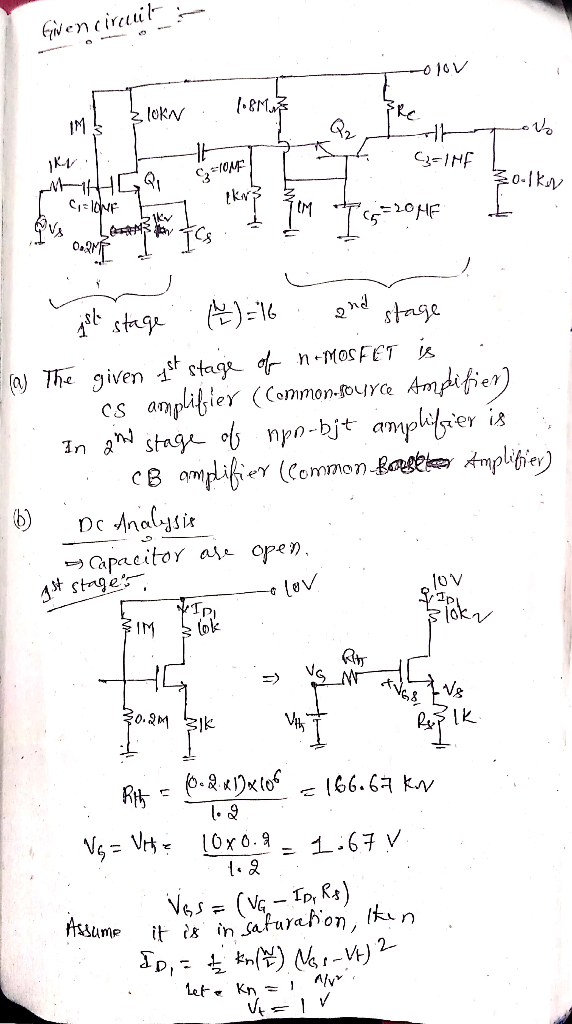 Given circuit :-
10V
1M
10KΩ
1.8M
Rc
Q2
Vo
1KΩ
C3=10MF
C3=1MF
Q1
C1=10MF
1KΩ
1M
C5=20MF
0.1KΩ
Vs
0.2M
1KΩ
Cs
1st stage (W/L)=16 2nd stage
(a) The given 1st stage of n-MOSFET is
CS amplifier (Common-source Amplifier)
In 2nd stage of npn-bjt amplifier is
CB amplifier (Common- Amplifier)
(b) DC Analysis
⇒ Capacitor are open.
1st stage :-
10V
ID1
1M
10k
0.2M
1k
⇒
10V
ID1
10kΩ
VG
Rth
+VGS-
Vs
Vth
Rs
1K
Rth = (0.2x1)x10^6 / 1.2 = 166.67 KΩ
VG = Vth = 10x0.2 / 1.2 = 1.67 V
VGS = (VG - ID1 Rs)
Assume it is in saturation, then
ID1 = 1/2 kn(W/L) (VGS-Vt)^2
Let Kn = 1 A/V^2
Vt = 1 V